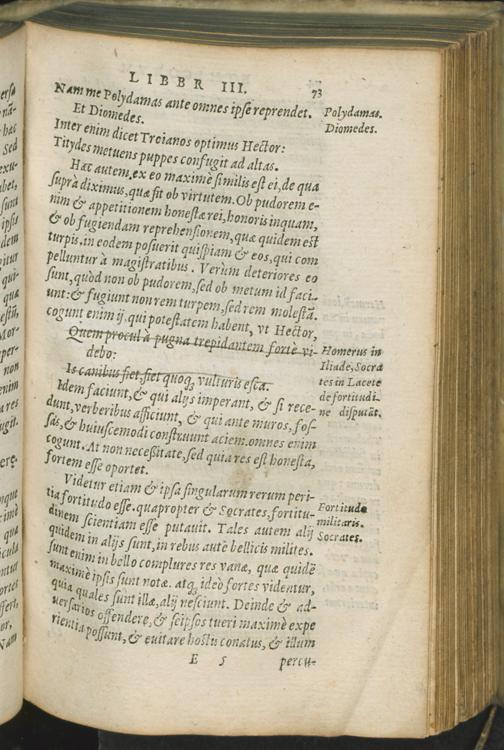 LIBER III. 73
Nam me Polydamas ante omnes ipse reprendet. Polydamas.
Et Diomedes. Diomedes.
Inter enim dicet Troianos optimus Hector:
Titydes metuens puppes confugit ad altas.
Hæc autem ex eo maximè similis est ei, de qua
suprà diximus, quæ fit ob virtutem. Ob pudorem e-
nim & appetitionem honestæ rei, honoris inquam,
& ob fugiendam reprehensionem, quæ quidem est
turpis. in eodem posuerit quispiam & eos, qui com
pelluntur à magistratibus. Verùm deteriores eo
sunt, quòd non ob pudorem, sed ob metum id faci-
unt: & fugiunt non rem turpem, sed rem molestã.
cogunt enim ij. qui potestatem habent, vt Hector,
Quem procul à pugna trepidantem fortè vi- Homerus in
debo: Iliade, Socra
Is canibus fiet, fiet quoq; vulturis esca. tes in Lacete
Idem faciunt, & qui alijs imperant, & si rece- de fortitudi-
dunt, verberibus afficiunt, & qui ante muros, fos- ne disputãt.
sas, & huiuscemodi construunt aciem. omnes enim
cogunt. At non necessitate, sed quia res est honesta,
fortem esse oportet.
Videtur etiam & ipsa singularum rerum peri-
tia fortitudo esse. quapropter & Socrates fortitu- Fortitudo
dinem scientiam esse putauit. Tales autem alij militaris.
quidem in alijs sunt, in rebus autẽ bellicis milites. Socrates.
sunt enim in bello complures res vanæ, quæ quidẽ
maximè ipsis sunt notæ. atq; ideò fortes videntur,
quia quales sunt illæ, alij nesciunt. Deinde & ad-
uersarios offendere, & seipsos tueri maximè expe
rientia possunt, & euitare hostiũ conatus, & illum
E 5 percu-